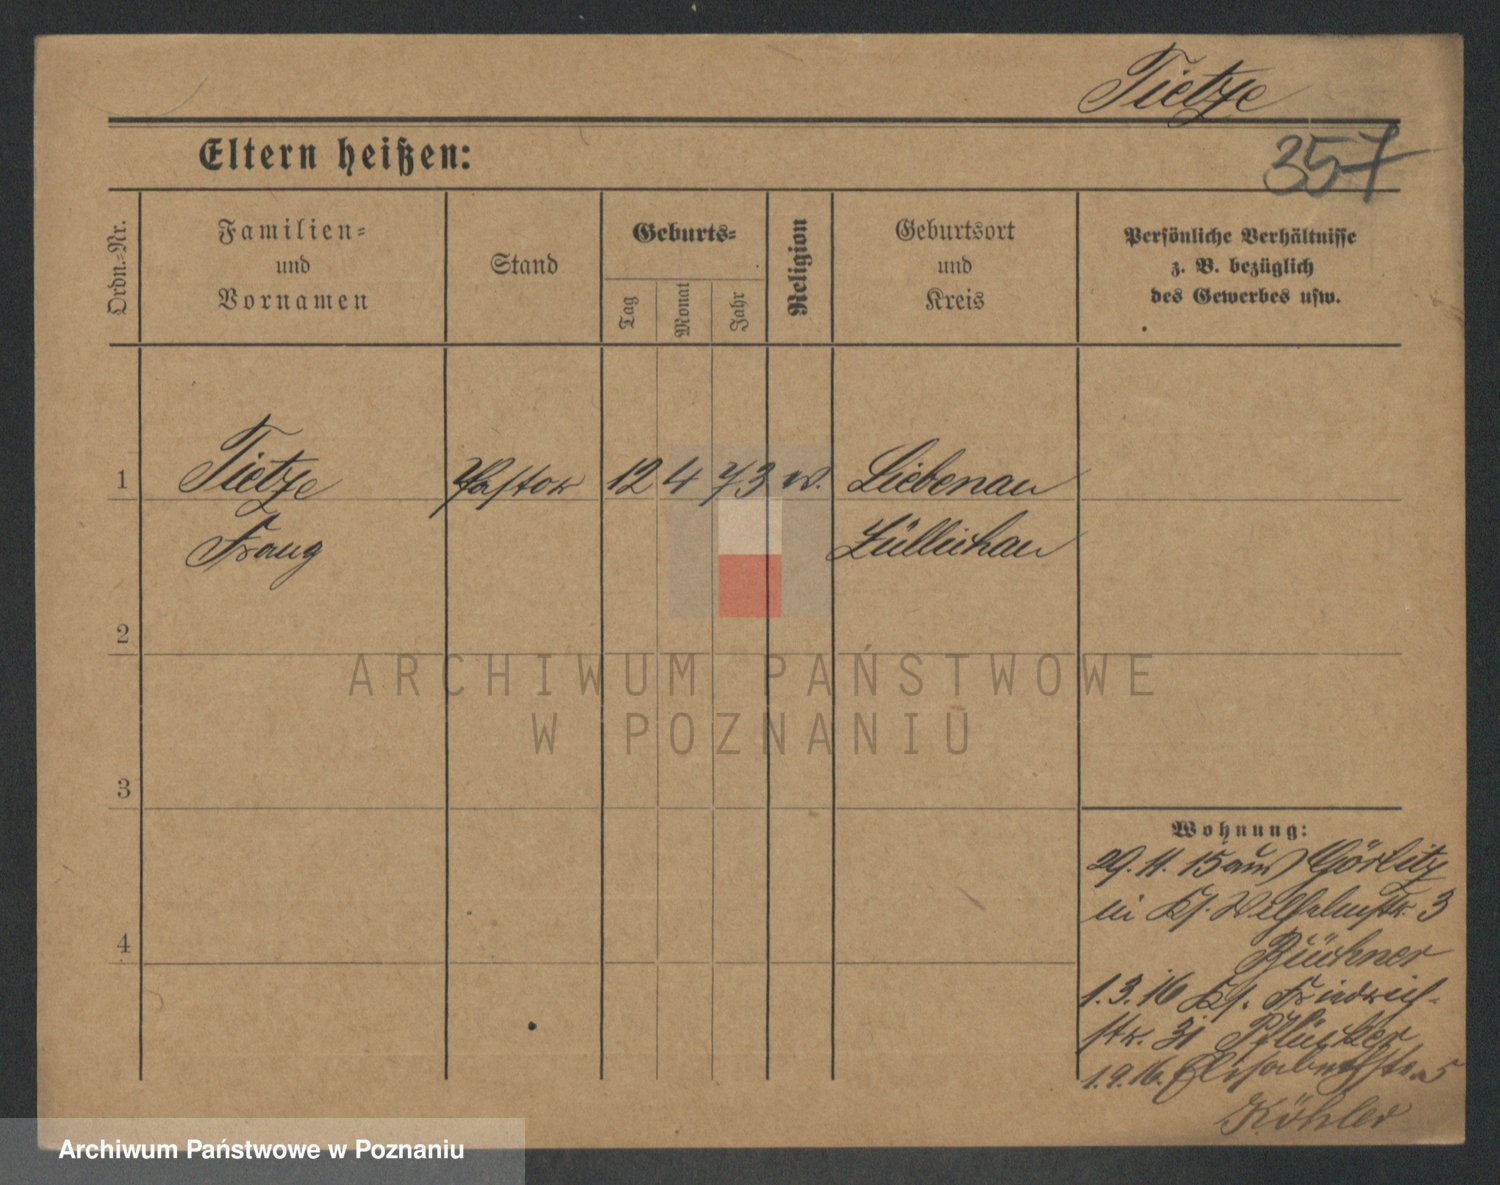 Tietze
357
Eltern heißen:
Ordn.-Nr.
Familien-
und
Vornamen
Stand
Geburts-
Tag
Monat
Jahr
Religion
Geburtsort
und
Kreis
Persönliche Verhältnisse
z. B. bezüglich
des Gewerbes usw.
1 Tietze Pastor 12 4 73 Liebenau
Züllichau
2
3
4
ARCHIWUM PAŃSTWOWE
W POZNANIU
Wohnung:
29.11.15 aus Görlitz
in Wilhelmstr. 3
Büchner
1.3.16 Friedrich-
str. 31
1.9.16. Elisabethstr. 5
Köhler
Archiwum Państwowe w Poznaniu